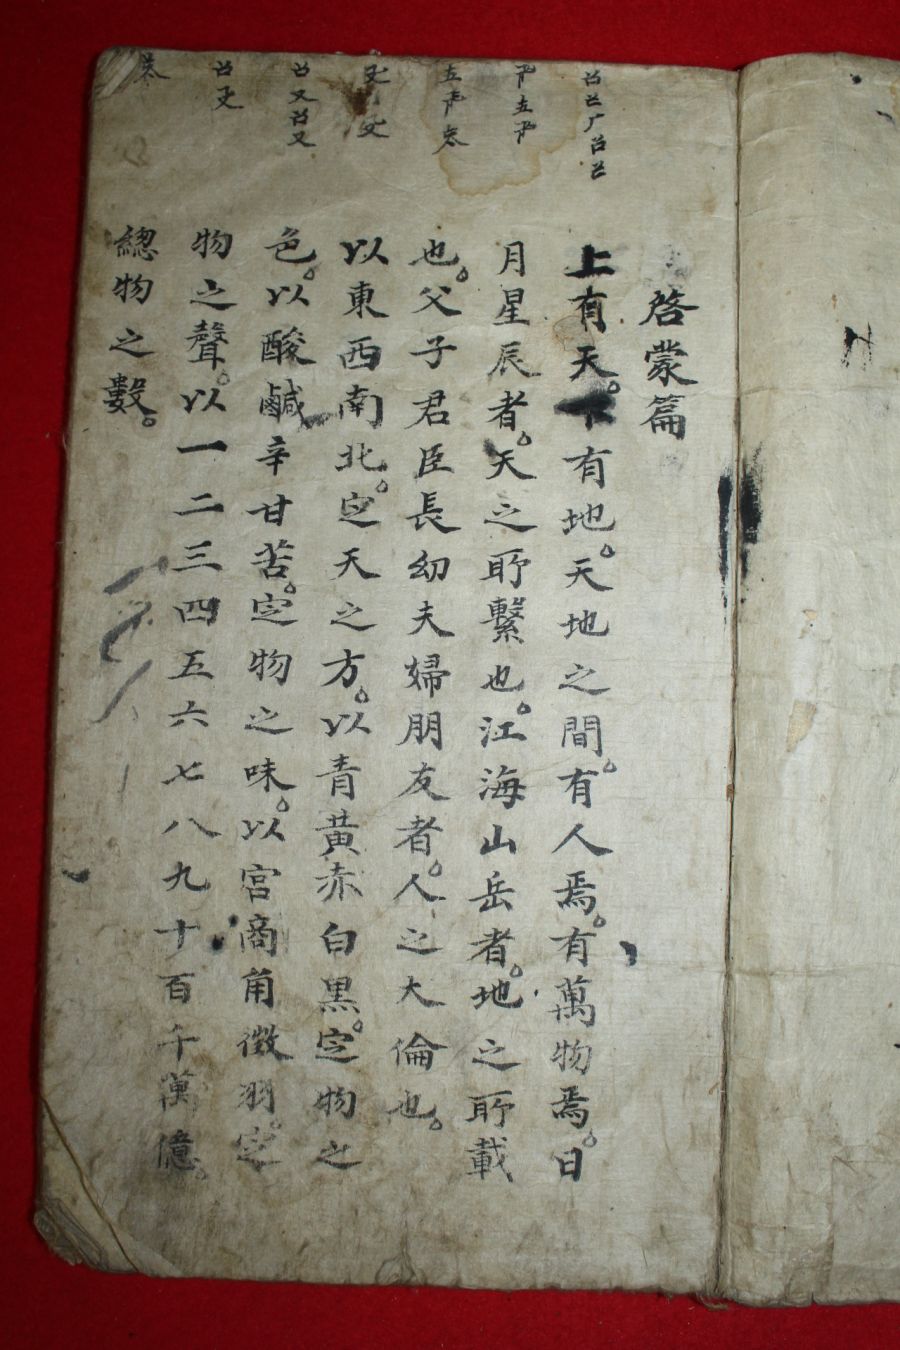 啓蒙篇
上有天。下有地。天地之間。有人焉。有萬物焉。日
月星辰者。天之所繫也。江海山岳者。地之所載
也。父子君臣長幼夫婦朋友者。人之大倫也。
以東西南北。定天之方。以青黃赤白黑。定物之
色。以酸鹹辛甘苦。定物之味。以宮商角徵羽。定
物之聲。以一二三四五六七八九十百千萬億。
總物之數。